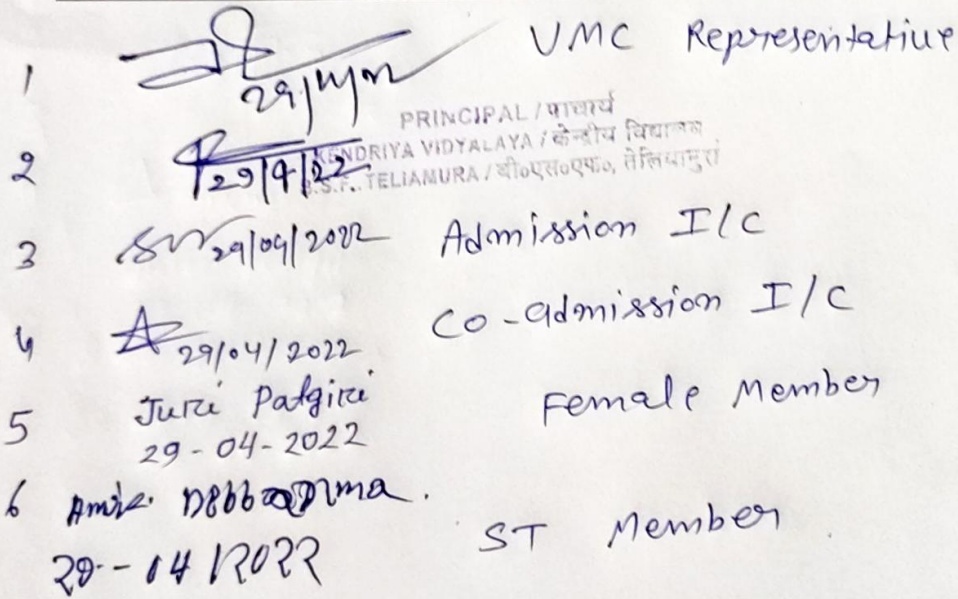 1 VMC Representative
PRINCIPAL / प्राचार्य
2 29/4/22 KENDRIYA VIDYALAYA / केन्द्रीय विद्यालय
B.S.F. TELIAMURA / बी०एस०एफ०, तेलियामुरा
3 29/04/2022 Admission I/C
4 29/04/2022 Co-admission I/C
5 Juri Patgiri Female Member
29-04-2022
6 Debbarma.
04/2022 ST Member